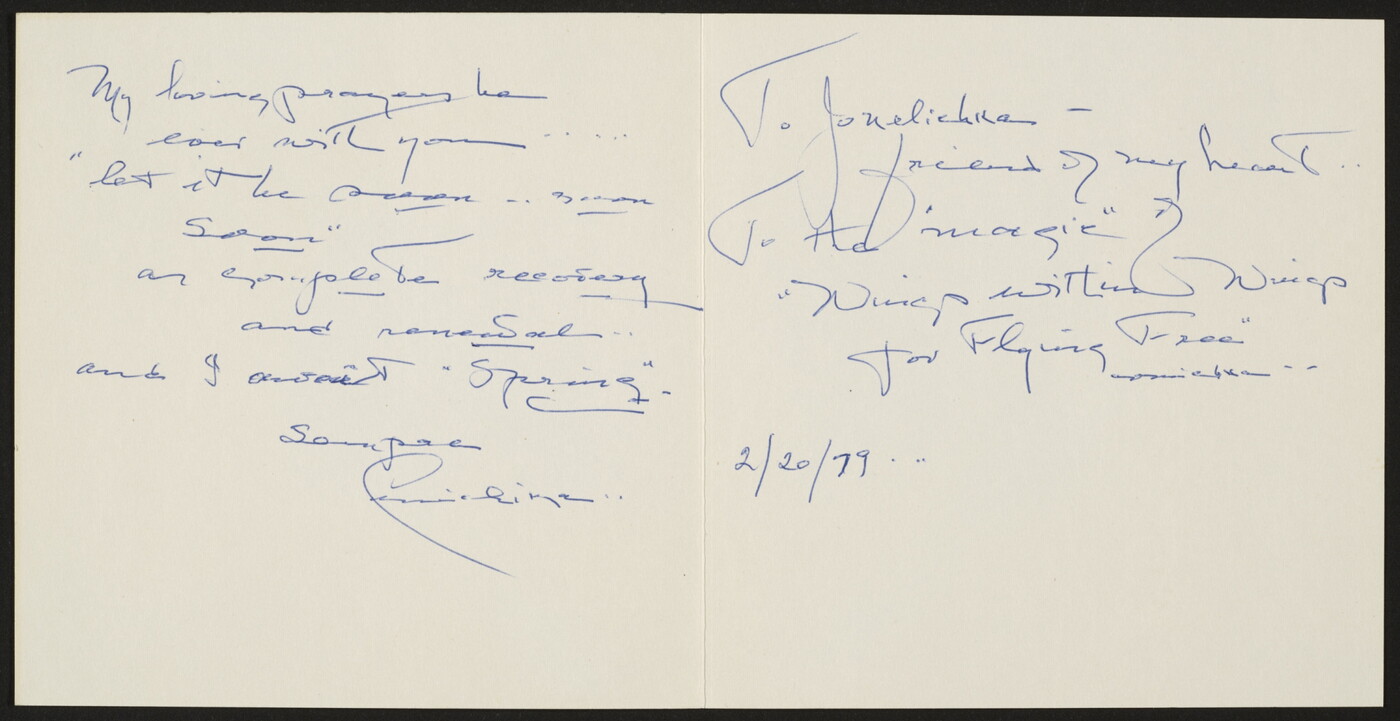 My loving prayers be
ever with you .....
"let it be soon .. soon
Soon"
a complete recovery
and renewal ..
and I await "Spring".

To Jonelichka -
friend of my heart ..
To the "magic" of
"Wings within Wings
for Flying Free"
2/20/79 ...